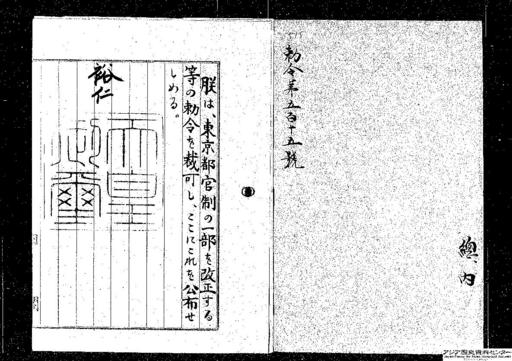 勅令第五百十五號
總、内
朕は、東京都官制の一部を改正する
等の勅令を裁可し、ここにこれを公布せ
しめる。
裕仁
天皇
御璽
アジア歴史資料センター